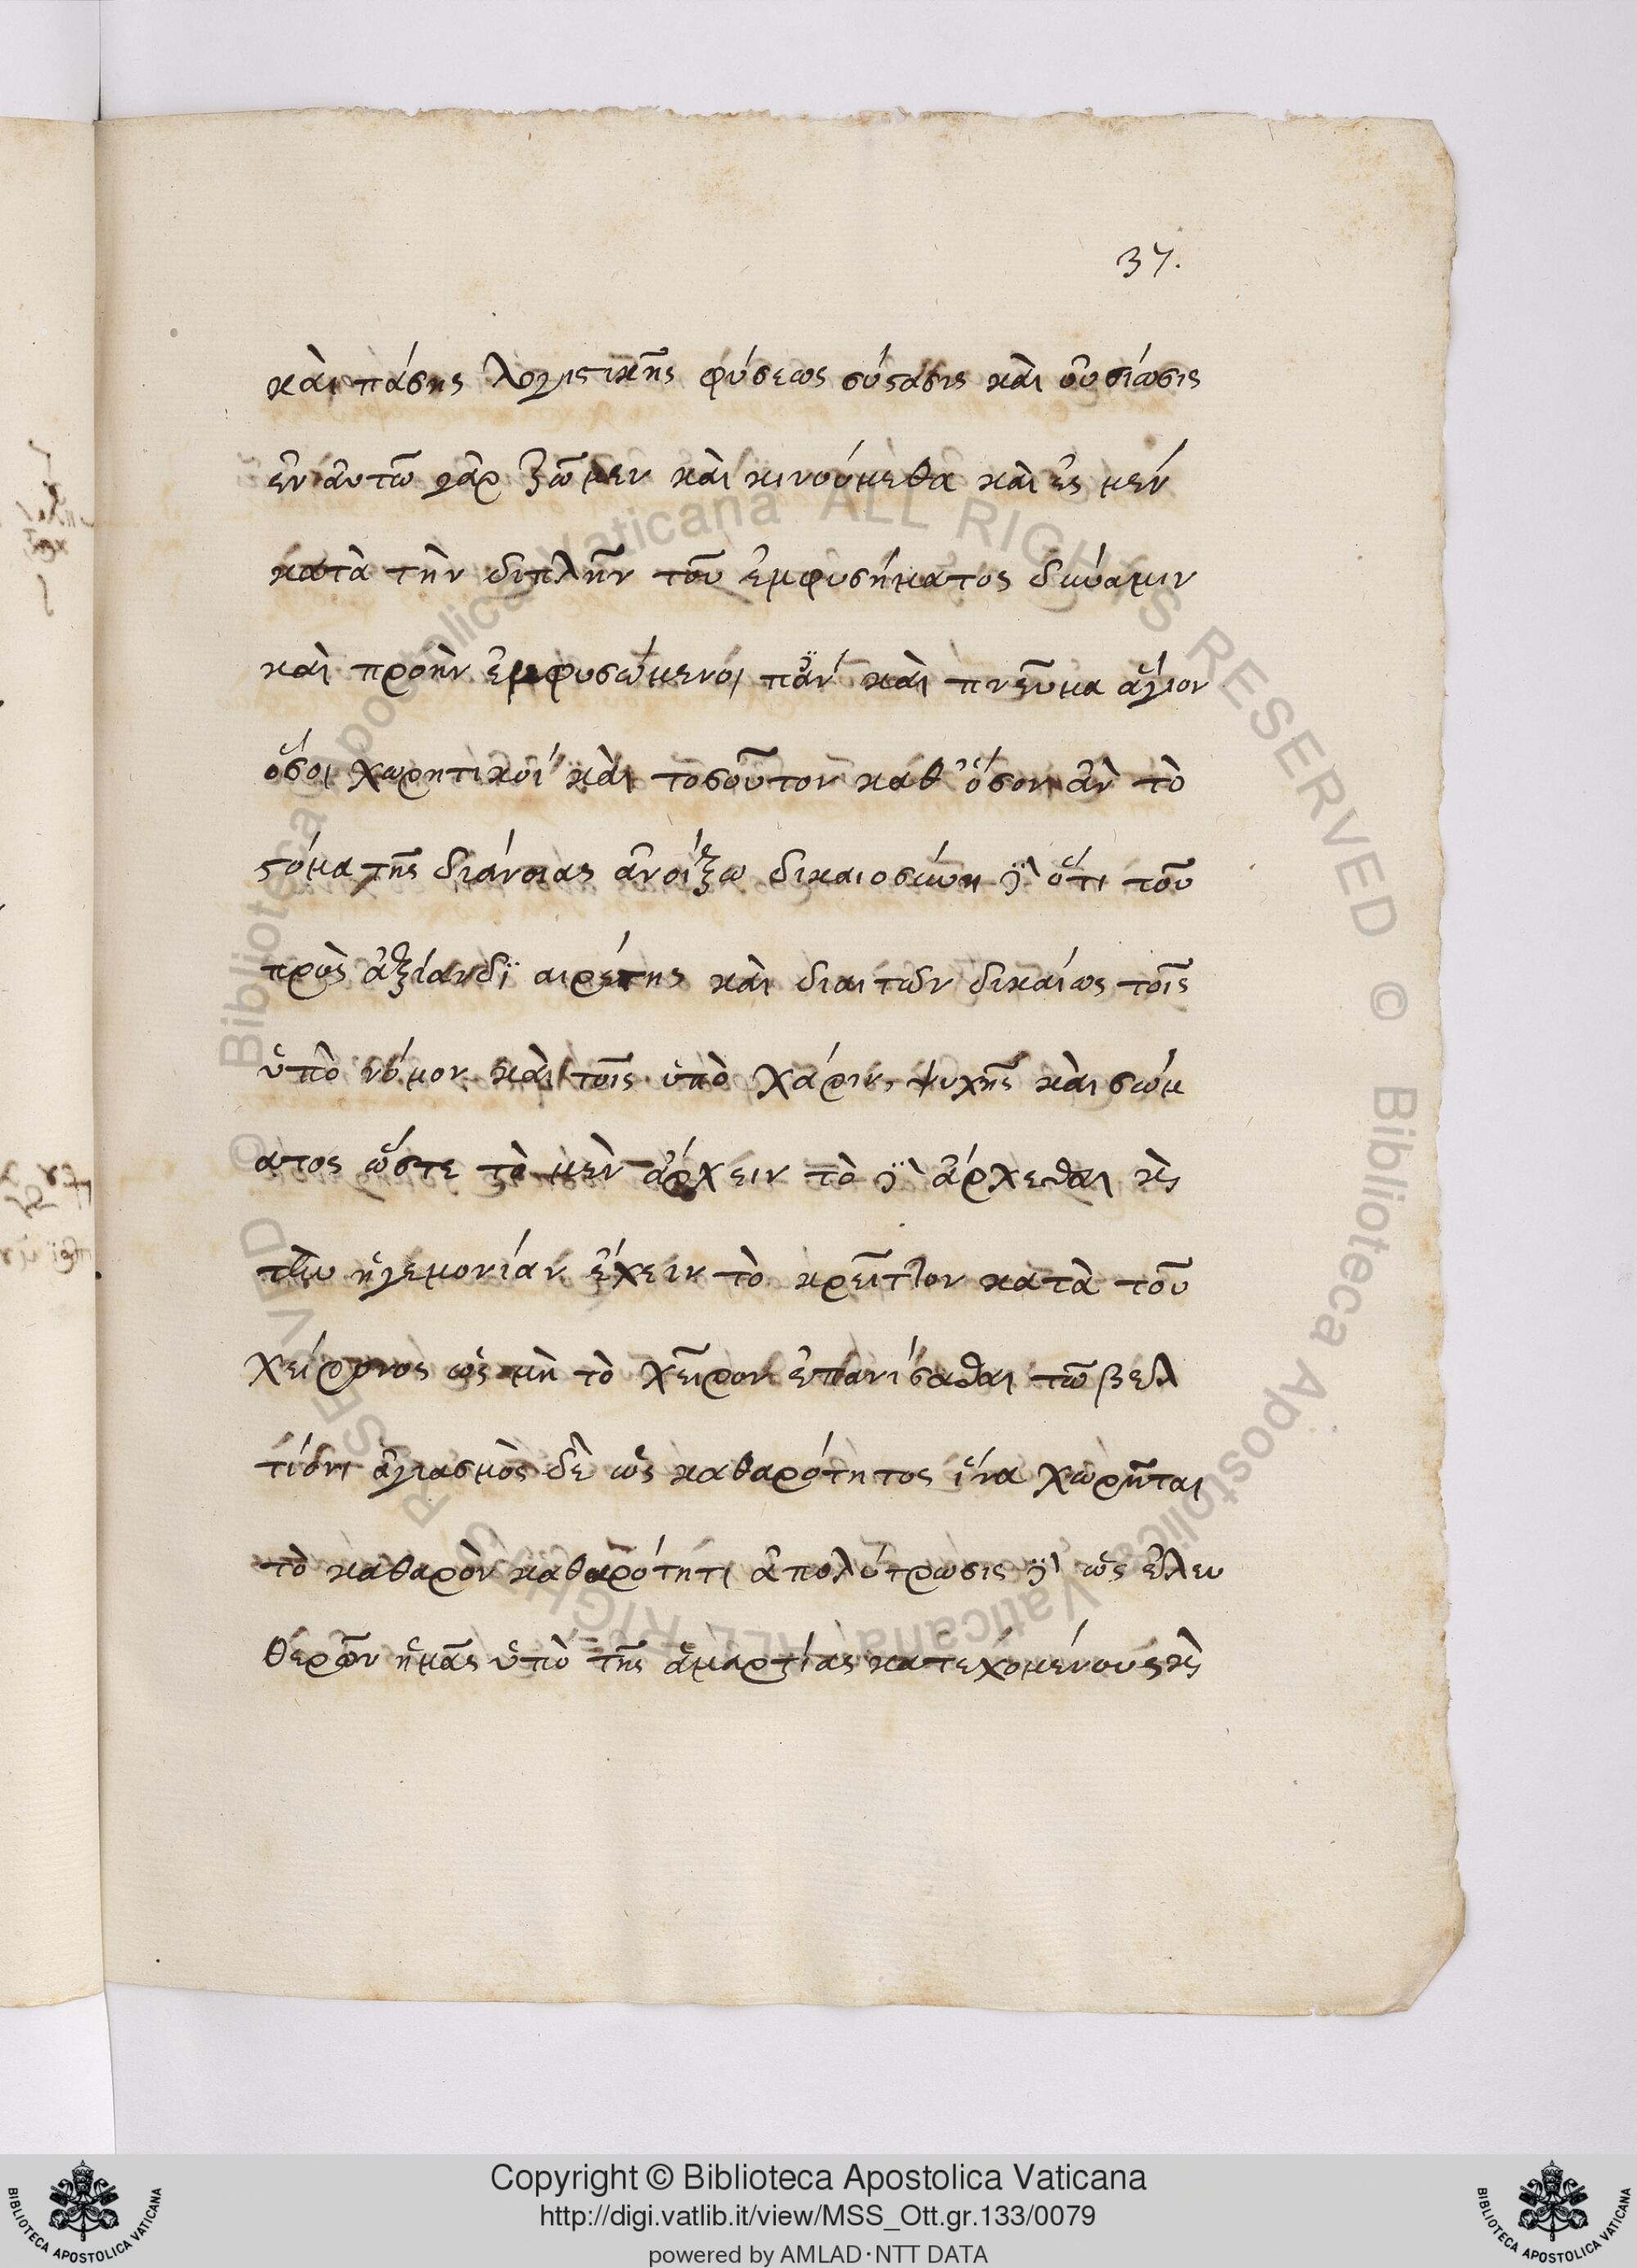 37.
καὶ πάσης λογιστικῆς φύσεως σύστασις καὶ οὐσίωσις
ἐν αὐτῶ γὰρ ζῶμεν καὶ κινούμεθα καὶ ἐς μεν
κατὰ τὴν διπλῆν τοῦ ἐμφυσήματος δύναμιν
καὶ προὴν ἐμφυσώμενοι πᾶν καὶ πνεῦμα ἅγιον
ὅσοι χωρητικοί καὶ τοσοῦτον καθ' ὅσον ἂν τὸ
στόμα τῆς διάνοιας ἀνοίξω δικαιοσύνη δὲ ὅτι τοῦ
πρὸς ἀξίαν δϊαιρέτης καὶ διαιτῶν δικαίως τοῖς
ὑπὸ νόμον καὶ τοῖς ὑπὸ χάριν, ψυχῆς καὶ σώμ
ατος ὥστε τὸ μὲν ἄρχειν τὸ δὲ ἄρχεσθαι καὶ
τὴν ἡγεμονίαν ἔχειν τὸ κρεῖττον κατὰ τοῦ
χείρονος ὡς μὴ τὸ χεῖρον ἐπανίστασθαι τῶ βελ
τίονι ἁγιασμὸς δὲ ὡς καθαρότητος ἵνα χωρῆται
τὸ καθαρὸν καθαρότητι ἀπολύτρωσις δὲ ὡς ἐλευ
θέρῶν ἡμᾶς ὑπὸ τῆς ἁμαρτίας κατεχόμένους καὶ
Copyright © Biblioteca Apostolica Vaticana
http://digi.vatlib.it/view/MSS_Ott.gr.133/0079
powered by AMLAD·NTT DATA
BIBLIOTECA APOSTOLICA VATICANA
BIBLIOTECA APOSTOLICA VATICANA
© Biblioteca Apostolica Vaticana ALL RIGHTS RESERVED © Biblioteca Apostolica Vaticana ALL RIGHTS RESERVED